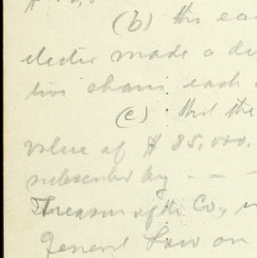 (b) the ea
elector made a di
tive shares each
(c) that the
value of $ 85,000.
subscribed by - - -
Treasurer of the Co.,
General Law on